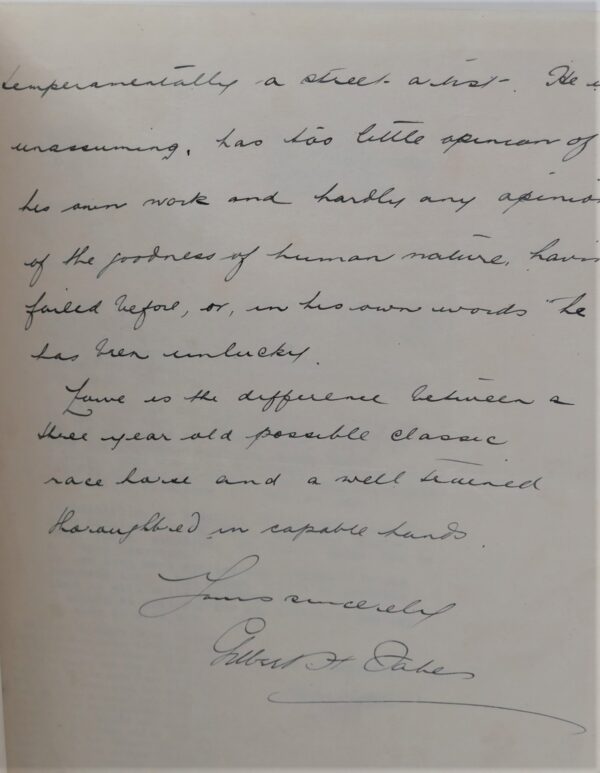 temperamentally a street artist. He i
unassuming, has too little opinion of
his own work and hardly any opinio
of the goodness of human nature, havin
failed before, or, in his own words "he
has been unlucky.
is the difference between a
three year old possible classic
race horse and a well trained
thoroughbred in capable hands.
Yours sincerely
Gilbert H Fabes